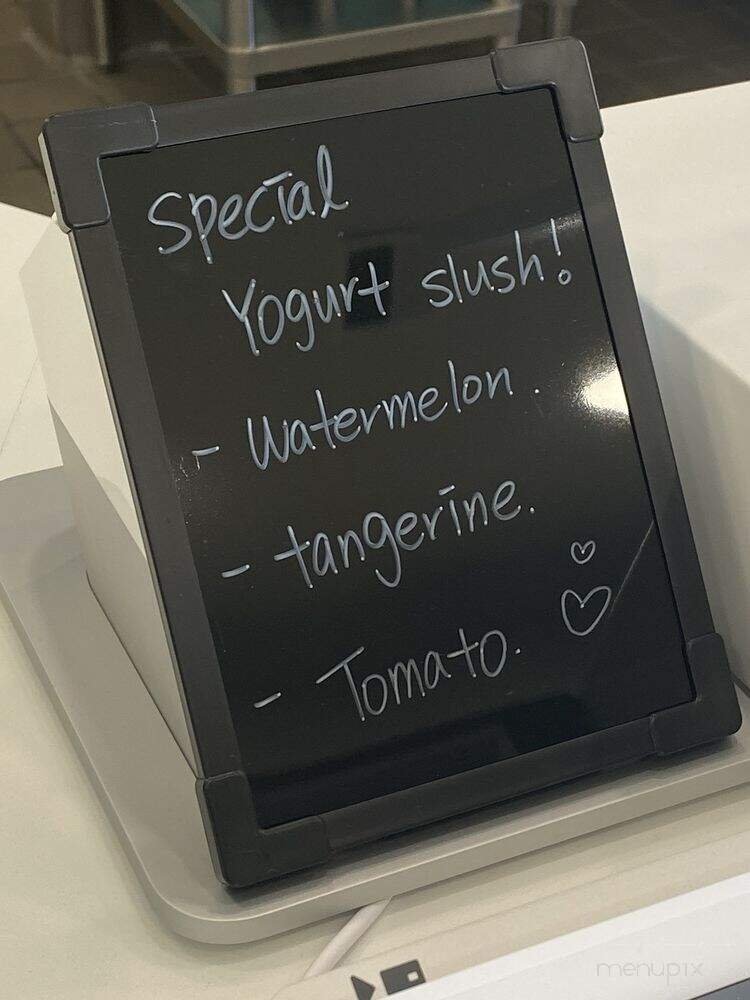 Special
Yogurt slush!
- Watermelon.
- tangerine.
- Tomato.
menupix